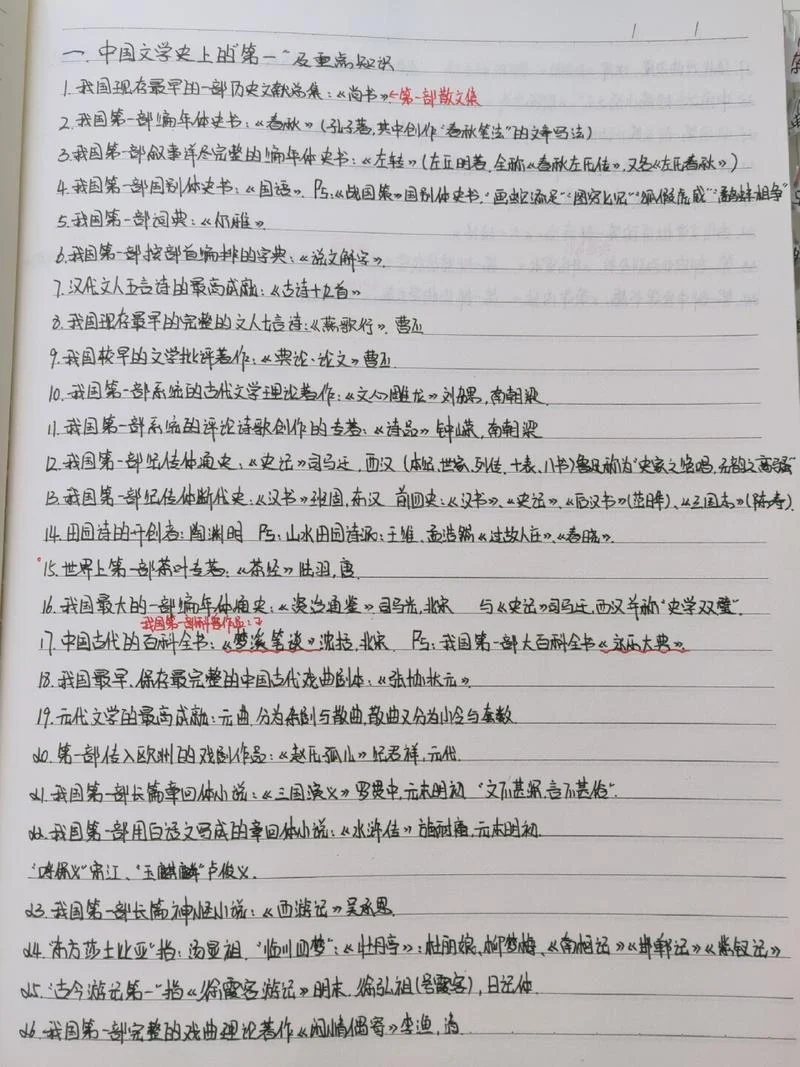 一. 中国文学史上的"第一"及重点知识
1. 我国现存最早的一部历史文献总集:《尚书》←第一部散文集
2. 我国第一部编年体史书:《春秋》(孔子著,其中创作"春秋笔法"的文章写法)
3. 我国第一部叙事详尽完整的编年体史书:《左转》(左丘明著,全称《春秋左氏传》,又名《左氏春秋》)
4. 我国第一部国别体史书:《国语》. Ps:《战国策》国别体史书,"画蛇添足""图穷匕见""狐假虎威""鹬蚌相争"
5. 我国第一部词典:《尔雅》.
6. 我国第一部按部首编排的字典:《说文解字》.
7. 汉代文人五言诗的最高成就:《古诗十九首》
8. 我国现存最早的完整的文人七言诗:《燕歌行》. 曹丕
9. 我国较早的文学批评著作:《典论·论文》曹丕.
10. 我国第一部系统的古代文学理论著作:《文心雕龙》刘勰,南朝梁.
11. 我国第一部系统的评论诗歌创作的专著:《诗品》钟嵘,南朝梁
12. 我国第一部纪传体通史:《史记》司马迁,西汉(本纪、世家、列传、十表、八书)鲁迅称为"史家之绝唱,无韵之离骚"
13. 我国第一部纪传体断代史:《汉书》班固,东汉 前四史:《汉书》、《史记》、《后汉书》(范晔)、《三国志》(陈寿).
14. 田园诗的开创者:陶渊明 Ps:山水田园诗派:王维、孟浩然《过故人庄》、《春晓》.
15. 世界上第一部茶叶专著:《茶经》陆羽,唐.
16. 我国最大的一部编年体通史:《资治通鉴》司马光,北宋 与《史记》司马迁,西汉并称"史学双璧".
我国第一部科普作品:
17. 中国古代的百科全书:《梦溪笔谈》沈括,北宋. Ps:我国第一部大百科全书《永乐大典》.
18. 我国最早、保存最完整的中国古代戏曲剧本:《张协状元》.
19. 元代文学的最高成就:元曲,分为杂剧与散曲,散曲又分为小令与套数
20. 第一部传入欧洲的戏剧作品:《赵氏孤儿》纪君祥,元代.
21. 我国第一部长篇章回体小说:《三国演义》罗贯中,元末明初 "文不甚深,言不甚俗".
22. 我国第一部用白话文写成的章回体小说:《水浒传》施耐庵,元末明初.
"呼保义"宋江、"玉麒麟"卢俊义.
23. 我国第一部长篇神怪小说:《西游记》吴承恩.
24. "东方莎士比亚"指:汤显祖. "临川四梦":《牡丹亭》:杜丽娘、柳梦梅、《南柯记》《邯郸记》《紫钗记》
25. "古今游记第一"指《徐霞客游记》明末. 徐弘祖(号霞客),日记体
26. 我国第一部完整的戏曲理论著作《闲情偶寄》李渔,清.